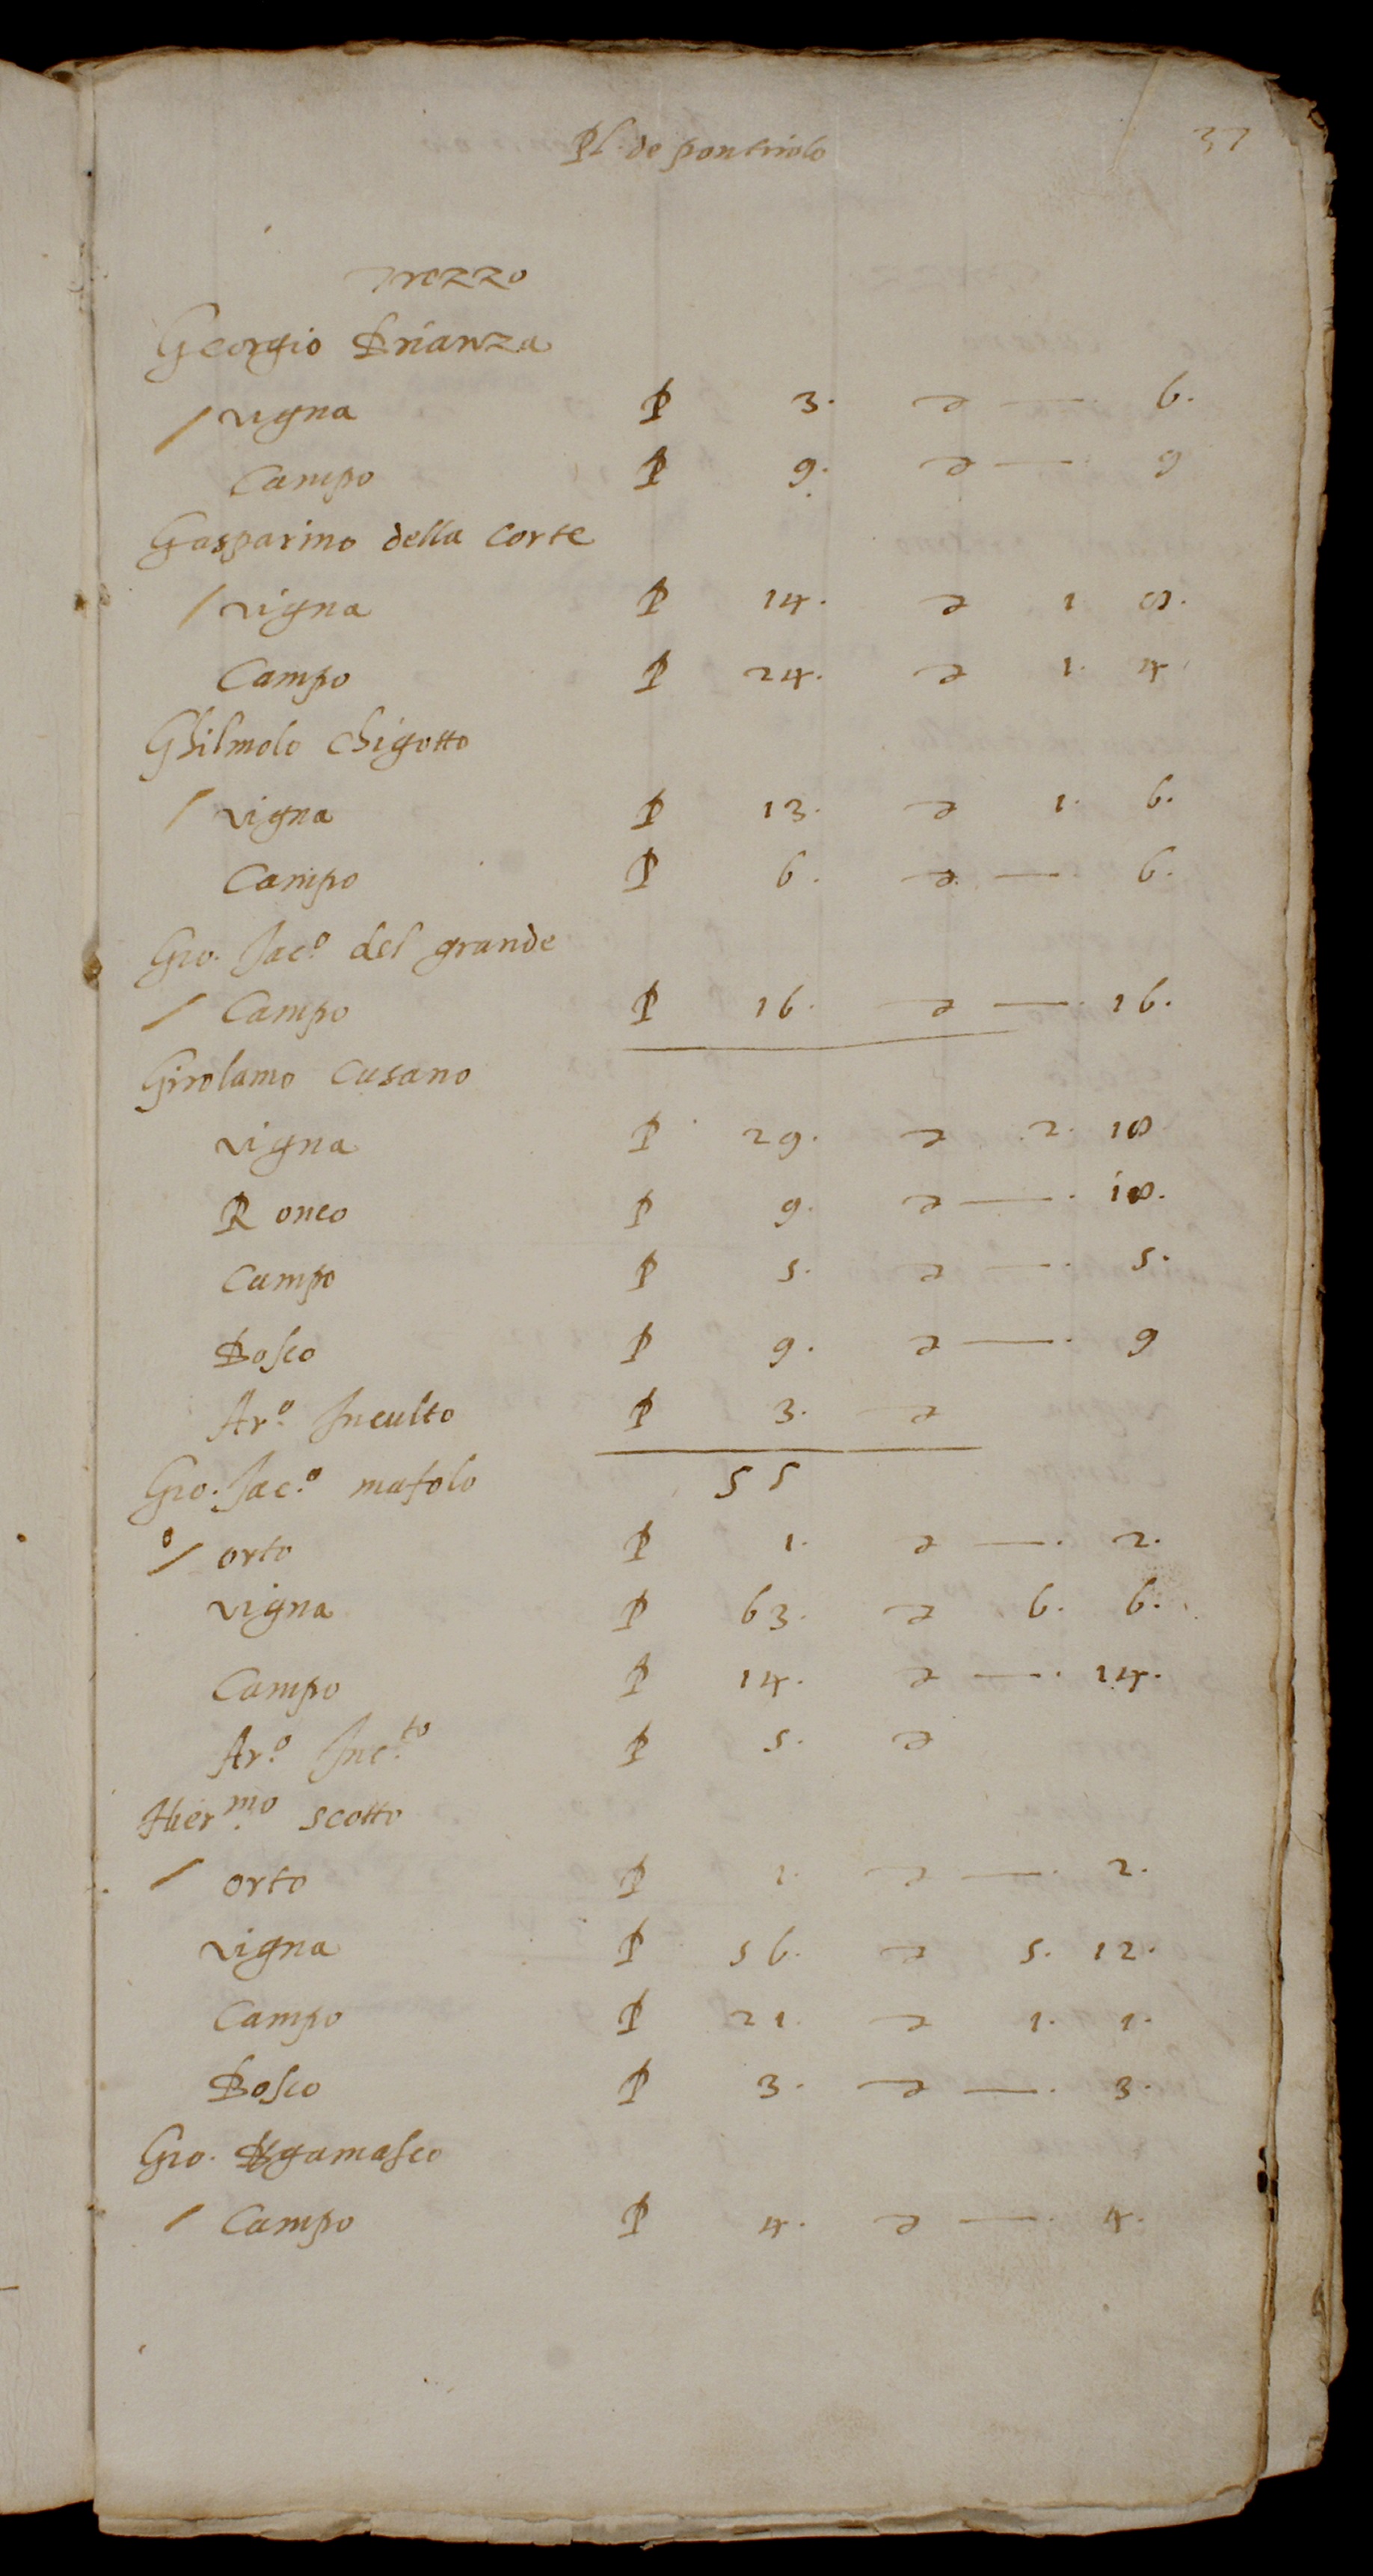 Pl. de pontriolo 37
Trezzo
Georgio Brianza
/ vigna P 3. ə — 6.
Campo P 9. ə — 9
Gasparino della Corte
/ vigna P 14. ə 1 8.
Campo P 24. ə 1. 4
Ghilmolo Chigotto
/ vigna P 13. ə 1. 6.
Campo P 6. ə — 6.
Gio. Jac.º del grande
/ Campo P 16. ə — 16.
Girolamo Cusano
vigna P 29. ə 2. 18
Ronco P 9. ə — 18.
Campo P 5. ə — 5.
Bosco P 9. ə — 9
Ar.º Inculto P 3. ə
Gio. Jac.º mafolo 55
º/ orto P 1. ə — 2.
vigna P 63. ə 6. 6.
Campo P 14. ə — 14.
Ar.º Inc.to P 5. ə
Hier.mo scotto
/ orto P 1. ə — 2.
vigna P 56. ə 5. 12.
Campo P 21. ə 1. 1.
Bosco P 3. ə — 3.
Gio. Bgamasco
/ Campo P 4. ə — 4.